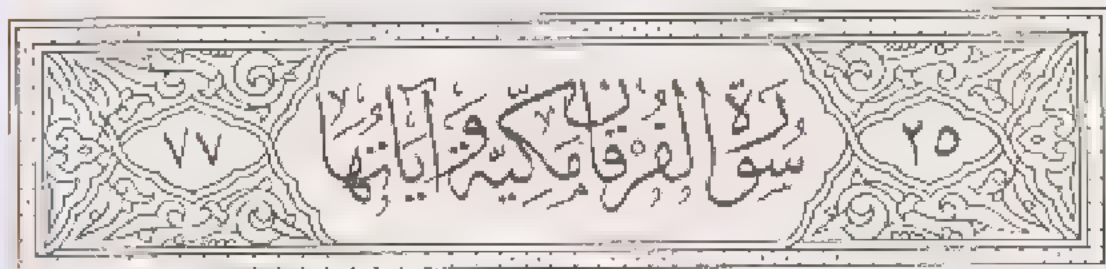 ٢٥ سُورَة الفُرقَان مَكيّة وَآيَاتُهَا ٧٧